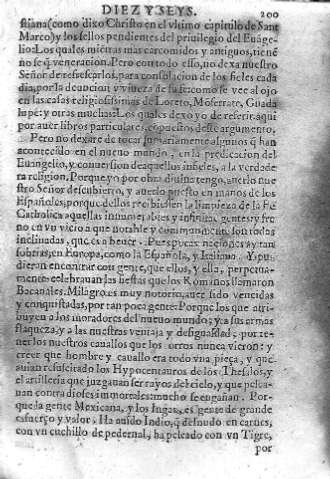 DIEZ Y SEYS. 200
stiana (como dixo Christo en el vltimo capitulo de Sant
Marco) y los sellos pendientes del priuilegio del Euāge-
lio: Los quales miētras mas carcomidos y antiguos, tienē
no se q̄ veneracion. Pero con todo esso, no dexa nuestro
Señor de refrescarlos, para consolacion de los fieles cada
dia, por la deuocion y viueza de su fe: como se vee al ojo
en las casas religiosissimas de Loreto, Mōserrate, Guada
lupe: y otras muchas: Los quales dexo yo de referir, aqui
por auer libros particulares, copiosos deste argumento.
Pero no dexare de tocar sumariamente algunos q̄ han
acontescido en el nueuo mundo, en la predicacion del
Euangelio, y conuersion de aquellos infieles, a la verdade
ra religion. Porque yo por obra diuina tengo, auerlo nue
stro Señor descubierto, y auerlo puesto en manos de los
Españoles, porque dellos recibiessen la limpieza de la Fe
Catholica aquellas innumerables y infinitas gentes: y fre
no en vn vicio a que notable y communmente son todos
inclinados, que es a beuer. Pues pocas naciones ay tan
sobrias, en Europa, como la Española, y Italiana. Y si pu
dieran encontrar con gente, que ellos, y ella, perpetua-
mente celebraran las fiestas que los Romanos llamaron
Bacanales. Milagro es muy notorio, auer sido vencidas
y conquistadas, por tan poca gente: Porque los que atri-
buyen a los moradores del nueuo mundo; y a sus armas
flaqueza: y a las nuestras ventaja y desigualdad, por te-
ner los nuestros cauallos que los otros nunca vieron: y
creer que hombre y cauallo era todo vna pieça, y que
auian resuscitado los Hypocentauros de los Thesalos, y
el artilleria que juzgauan ser rayos del cielo, y que pelea-
uan contra dioses immortales: mucho se engañan. Por-
que la gente Mexicana, y los Ingas, es gente de grande
esfuerço y valor. Ha auido Indio, q̄ desnudo en carnes,
con vn cuchillo de pedernal, ha peleado con vn Tigre,
por